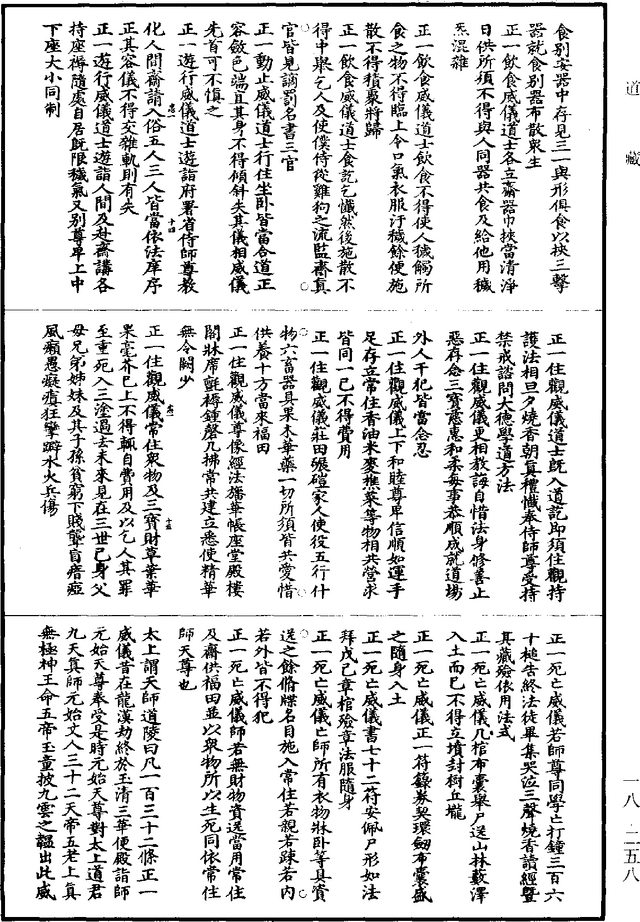 道藏
食別安器中存見三一與形俱食以挾三擊
器就食別器布散衆生
正一飲食威儀道士各立齋器巾挾當清淨
日供所須不得與人同器共食及給他用穢
炁混雜
正一飲食威儀道士飲食不得使人穢觸所
食之物不得臨上令口氣衣服汙穢餘便施
散不得積聚將歸
正一飲食威儀道士食訖乞懺然後施散不
得中舉乞人及使僕侍從雞狗之流監齋真
官皆見謫罰名書三官
正一動止威儀道士行住坐卧皆當合道正
容斂色端直其身不得傾斜失其儀相威儀
先首可不慎之
正一遊行威儀道士遊詣府署省侍師尊教
化人間齋請入俗五人三人皆當依法庠序
正其容儀不得交雜軌則有失
正一遊行威儀道士遊詣人間及赴齋講各
持座褥隨處自居既限穢氣又別尊卑上中
下座大小同制
十四
正一住觀威儀道士既入道訖即須住觀持
護法相旦夕燒香朝真禮懺奉侍師尊受持
禁戒諮問大德學道方法
正一住觀威儀更相教誨自惜法身修善止
惡存念三寶慈惠和柔每事恭順成就道場
外人干犯皆當念忍
正一住觀威儀上下和睦尊卑信順如運手
足存立常住香油米麥樵菜等物相共營求
皆同一己不得費用
正一住觀威儀莊田碾磑家人使役五行什
物六畜器具果木華藥一切所須皆共愛惜
供養十方當來福田
正一住觀威儀尊像經法旛華帳座堂殿樓
閣牀席氈褥鍾磬几拂常共建立悉使精華
無令闕少
正一住觀威儀常住衆物及三寶財草葉華
果毫芥已上不得輒自費用及以乞人其罪
至重死入三塗過去未來見在三世己身父
母兄弟姊妹及其子孫貧窮下賤聾盲瘖瘂
風癩愚癡瘨狂攣躃水火兵傷
十五
正一死亡威儀若師尊同學亡打鍾三百六
十槌告終法徒畢集哭泣三聲燒香讀經墍
其藏殮依用法式
正一死亡威儀几棺布囊舉尸送山林藪澤
入土而已不得立墳封樹丘壠
正一死亡威儀正一符籙券契環劒布囊盛
之隨身入土
正一死亡威儀書七十二符安佩尸形如法
拜戊己章棺殮章法服隨身
正一死亡威儀亡師所有衣物牀卧等具賫
送之餘脩牒名目施入常住若親若踈若内
若外皆不得犯
正一死亡威儀師若無財物資送當用常住
及齋供福田並以衆物所以生死同依常住
師天尊也
太上謂天師道陵曰凡一百三十二條正一
威儀昔在龍漢劫終於玉清三華便殿詣師
元始天尊奉受是時元始天尊對太上道君
九天真師元始丈人三十二天帝五老上真
無極神王命五帝玉童披九雲之韞出此威
一八·二五八